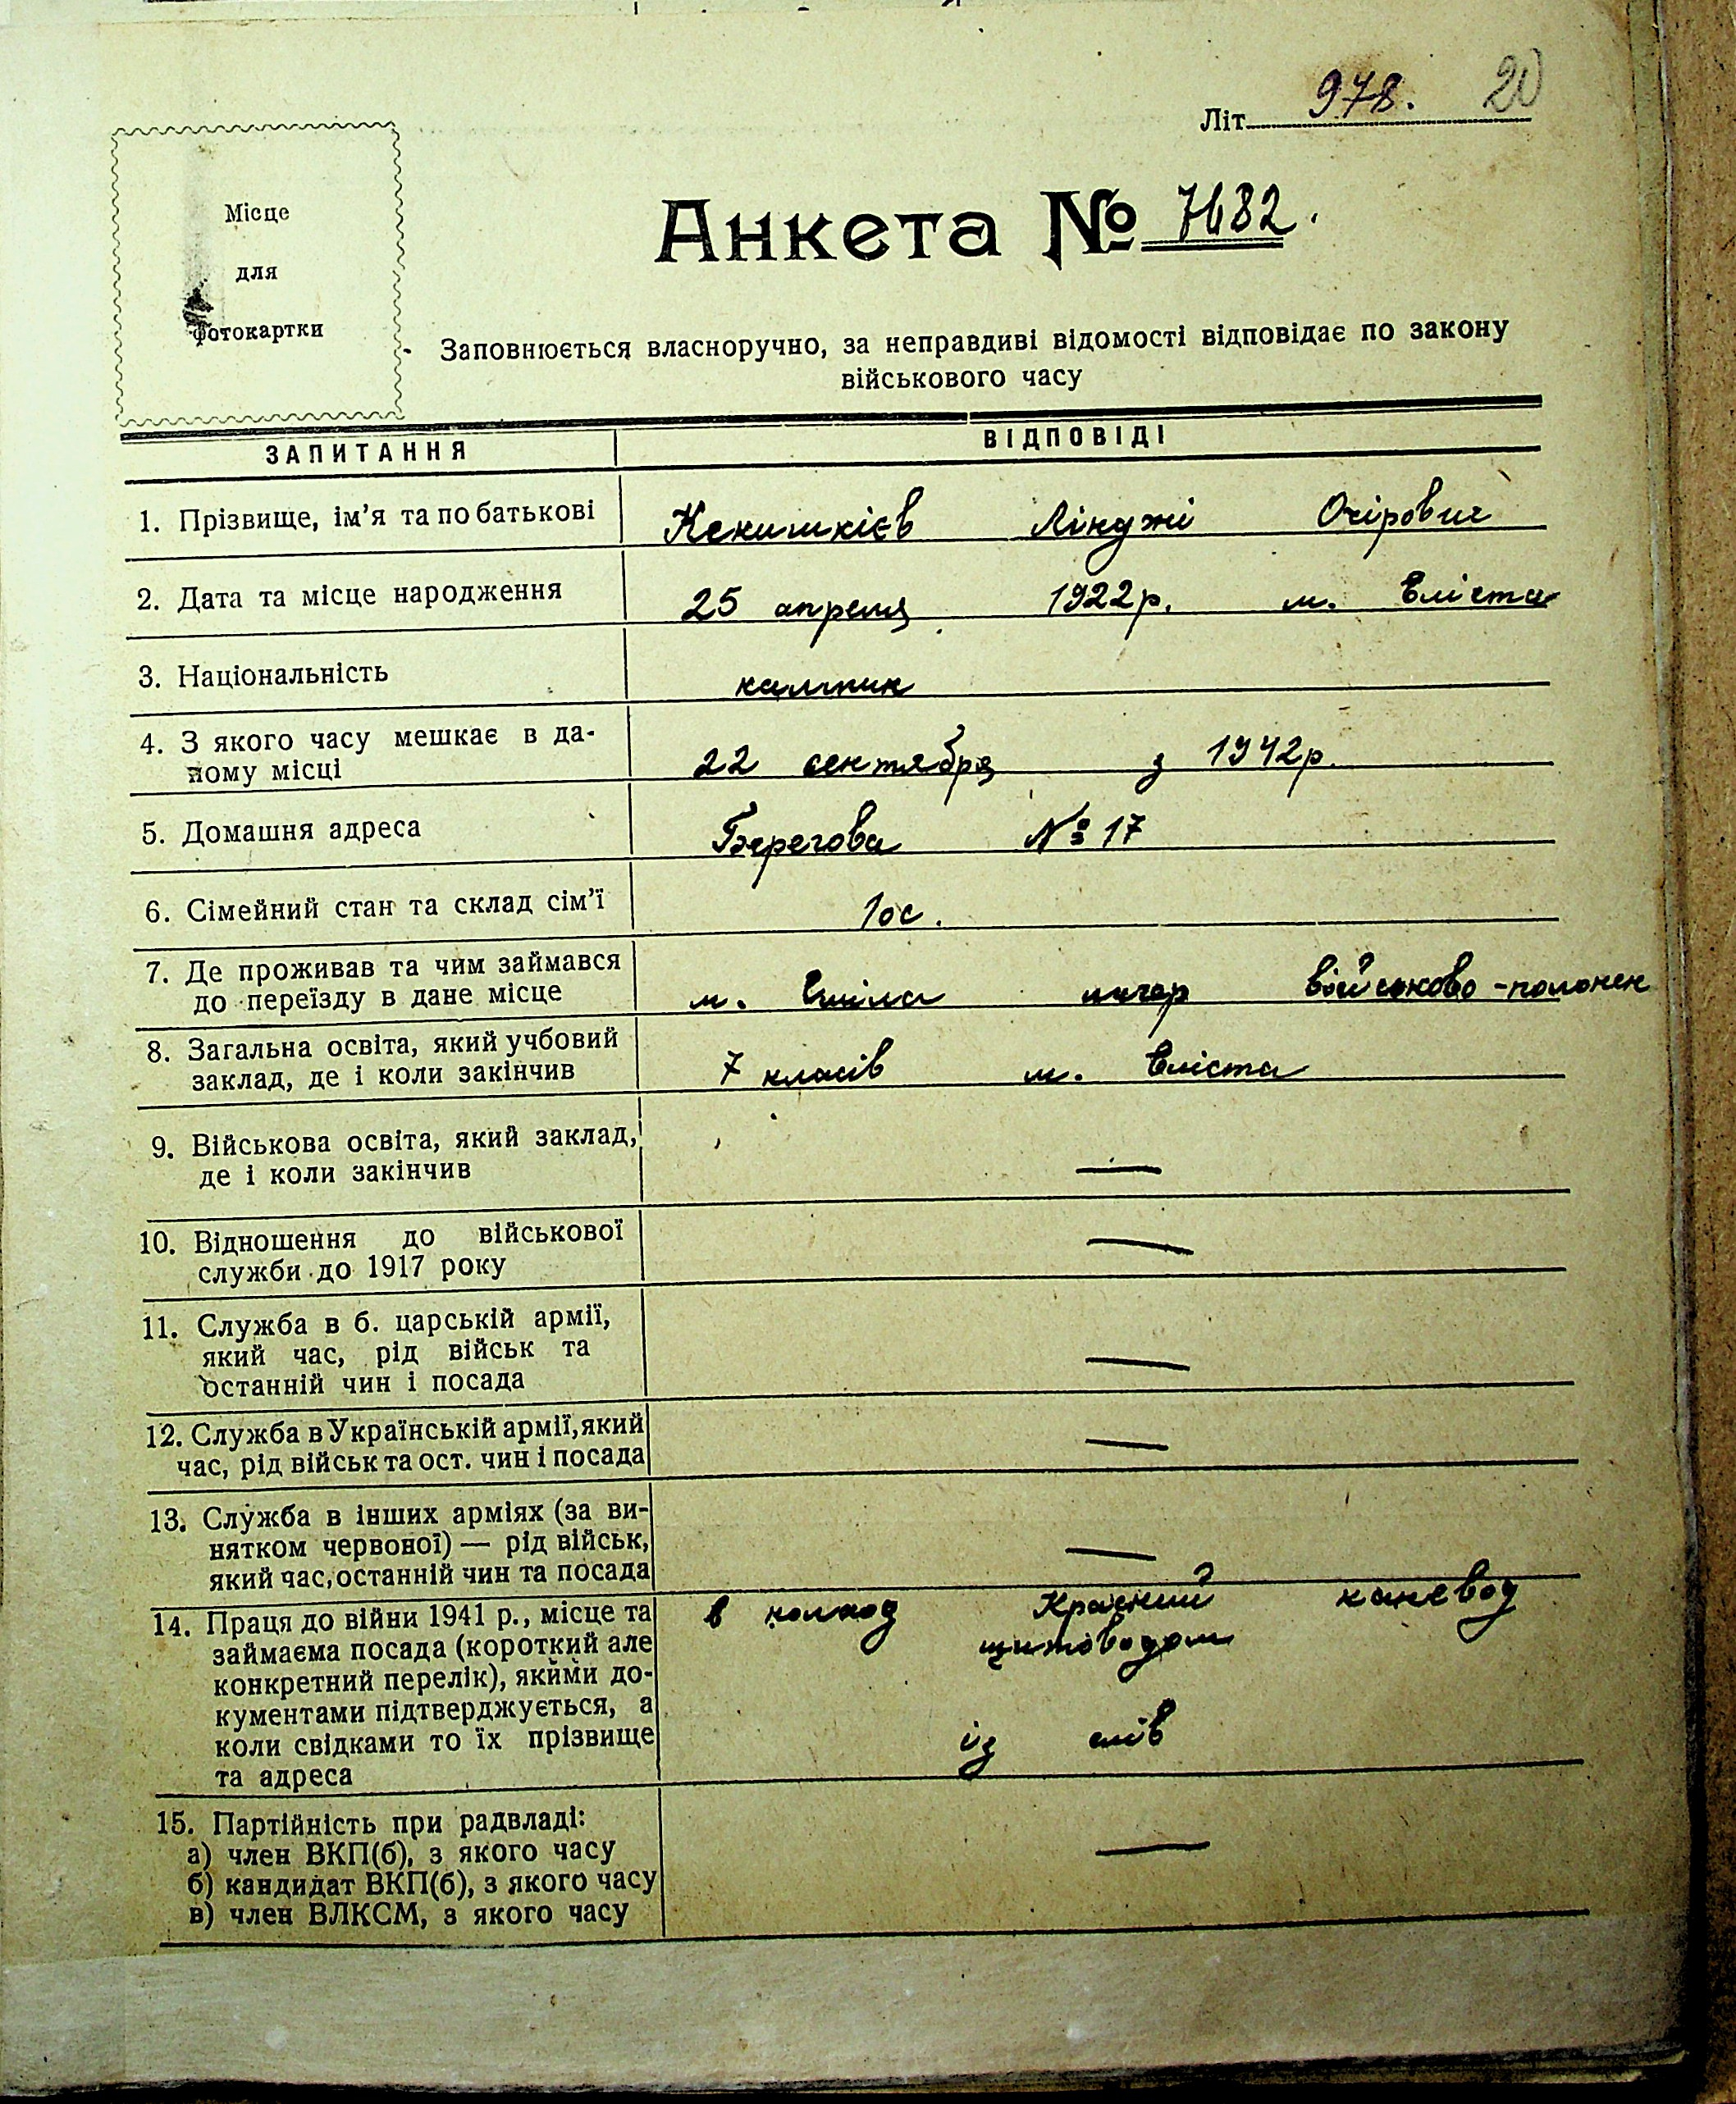 Літ. 978. 20
Місце
для
фотокартки
Анкета № 7682.
Заповнюється власноручно, за неправдиві відомості відповідає по закону
військового часу
ЗАПИТАННЯ ВІДПОВІДІ
1. Прізвище, ім'я та по батькові Очірович
2. Дата та місце народження 25 апреля 1922р. м. Еліста
3. Національність калмик
4. З якого часу мешкає в да-
ному місці 22 сентября з 1942р.
5. Домашня адреса Берегова № 17
6. Сімейний стан та склад сім'ї 1 ос.
7. Де проживав та чим займався
до переїзду в дане місце м. військово-полонен
8. Загальна освіта, який учбовий
заклад, де і коли закінчив 7 класів м. Еліста
9. Військова освіта, який заклад,
де і коли закінчив —
10. Відношення до військової
служби до 1917 року —
11. Служба в б. царській армії,
який час, рід військ та
останній чин і посада —
12. Служба в Українській армії, який
час, рід військ та ост. чин і посада —
13. Служба в інших арміях (за ви-
нятком червоної) — рід військ,
який час, останній чин та посада —
14. Праця до війни 1941 р., місце та в Красний
займаєма посада (короткий але
конкретний перелік), якими до-
кументами підтверджується, а
коли свідками то їх прізвище із слів
та адреса
15. Партійність при радвладі:
а) член ВКП(б), з якого часу —
б) кандидат ВКП(б), з якого часу
в) член ВЛКСМ, з якого часу